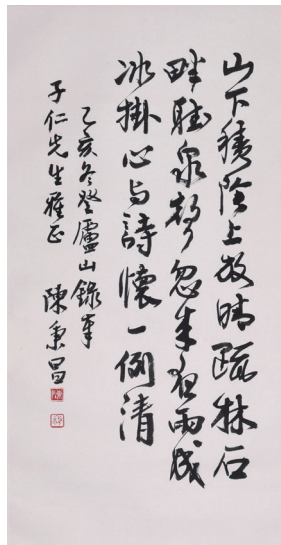 山下積陰上放晴疏林石
畔聽泉聲忽来夜雨成
冰掛心与詩懷一例清
乙亥冬登廬山錄奉
子仁先生雅正 陳秉昌